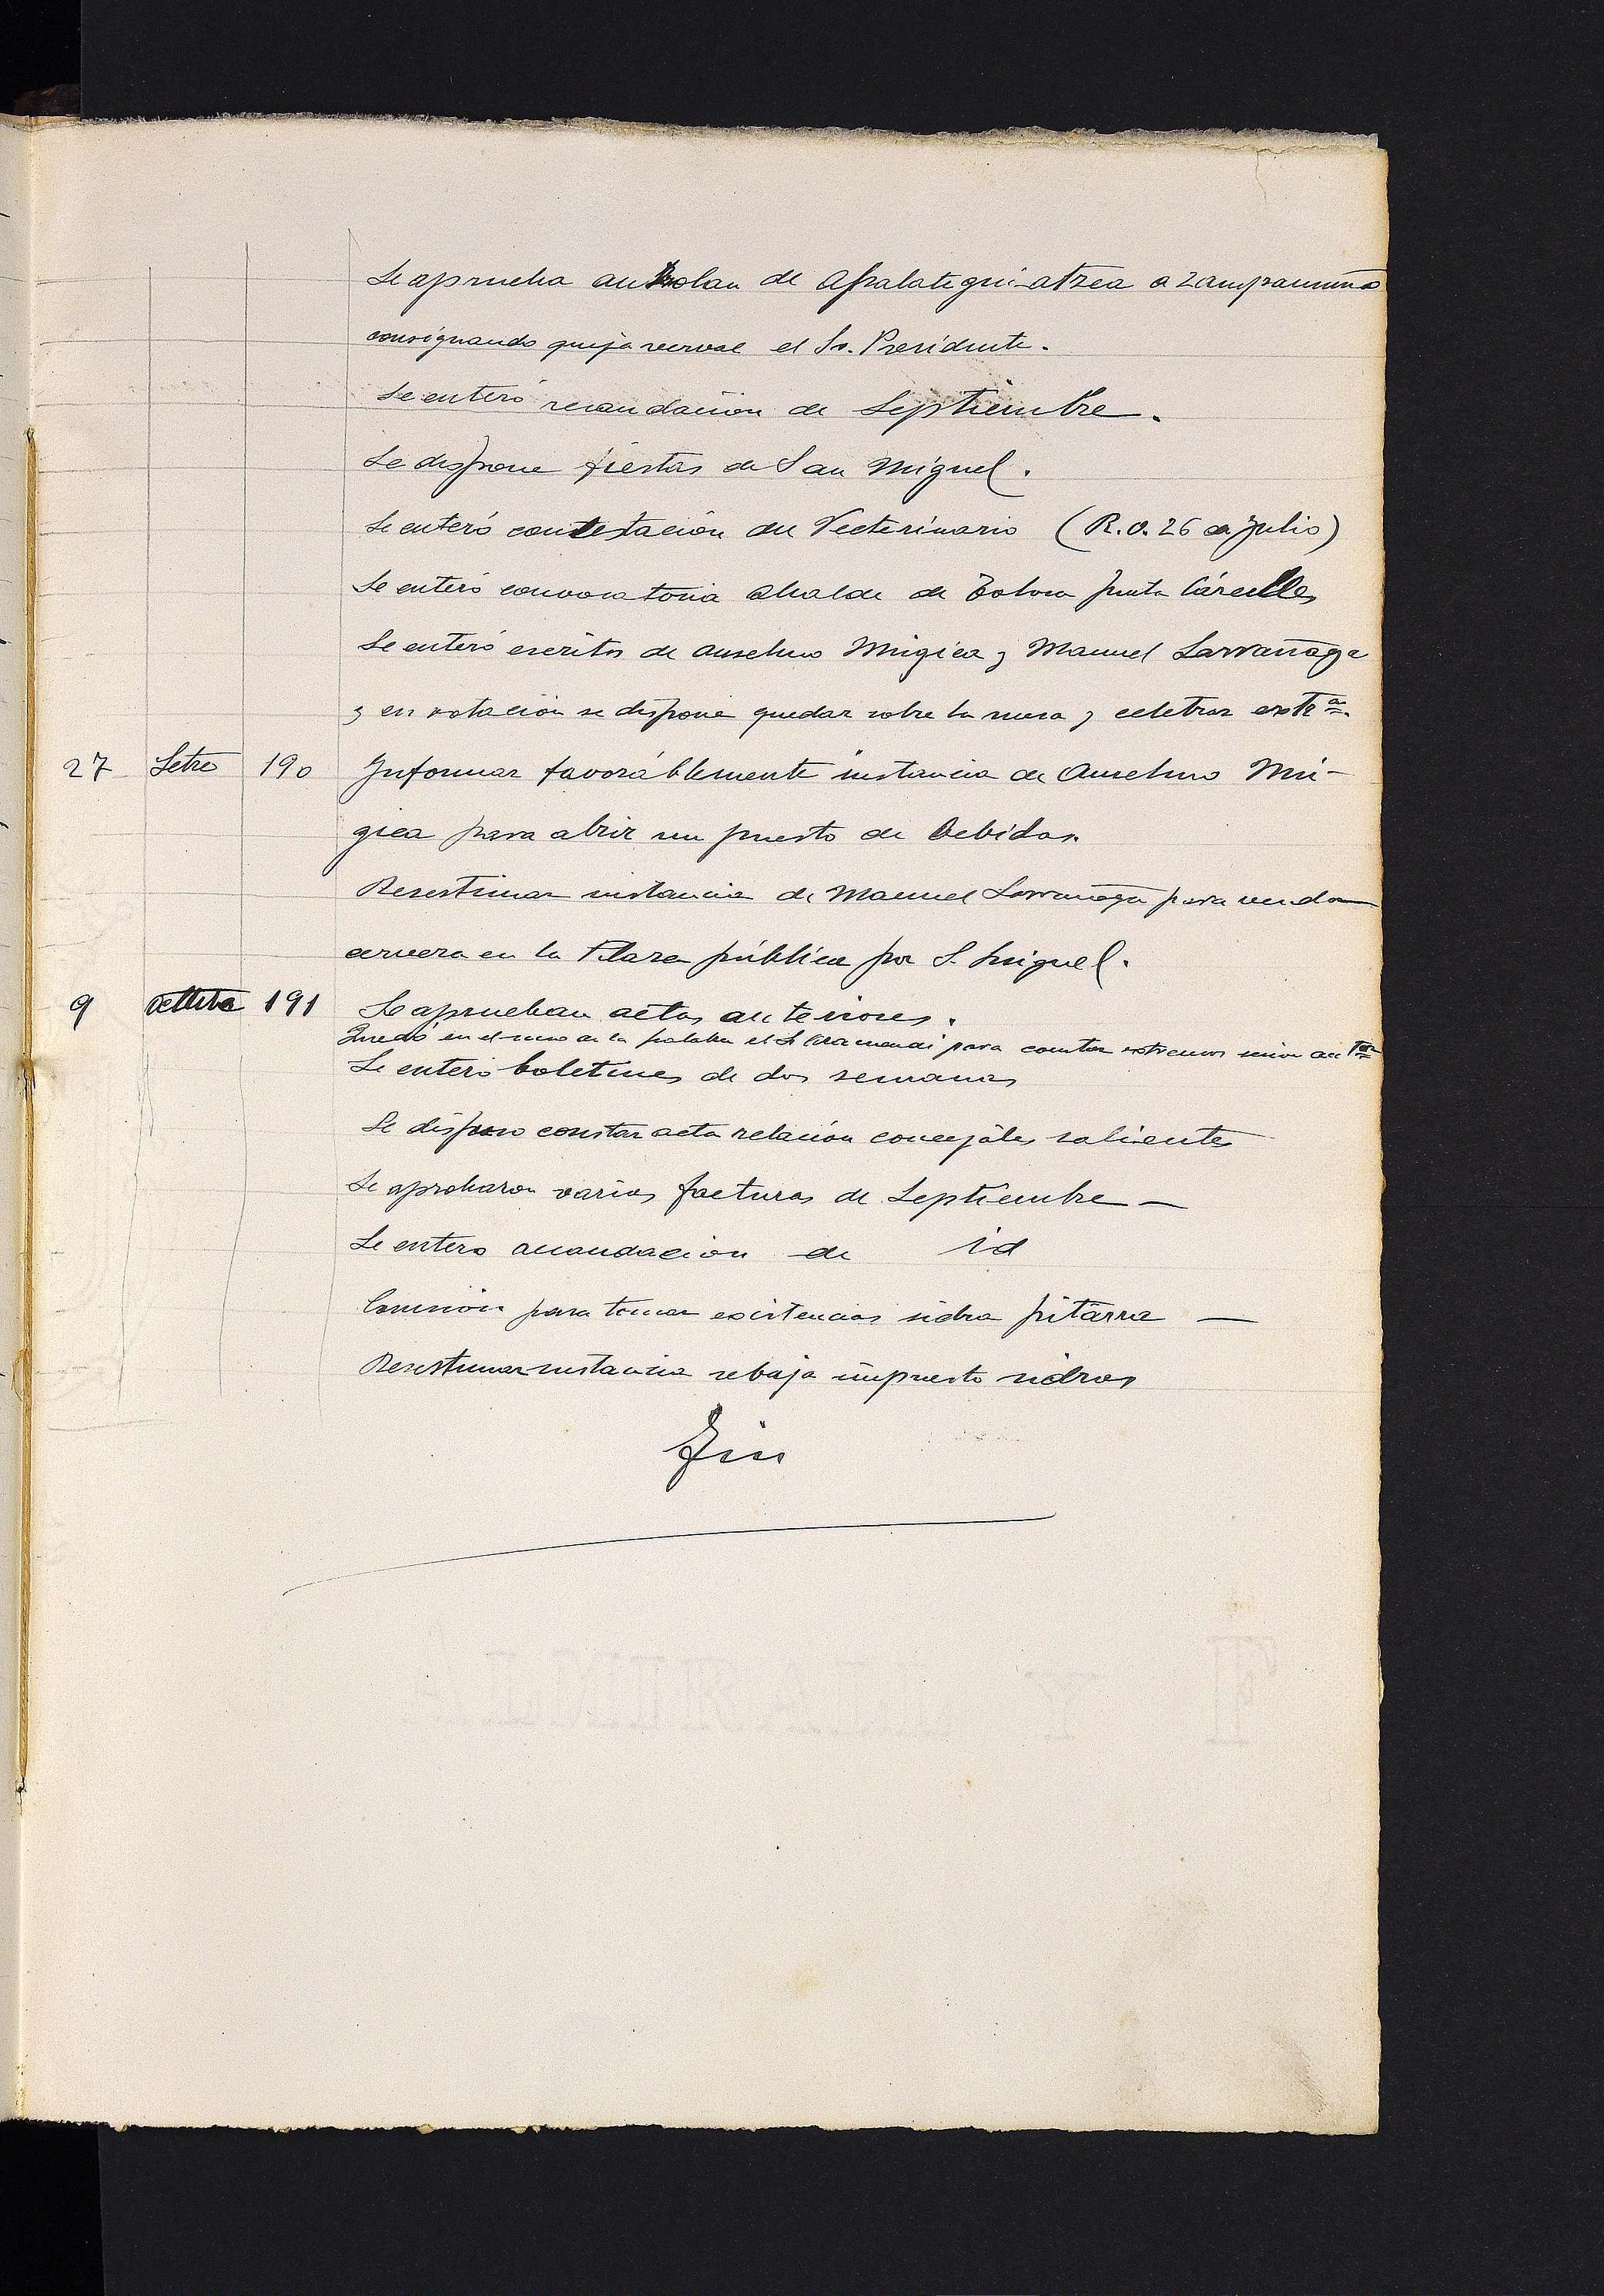 Se aprueba auzolan de Apalategui-atzea a Zampaumuño
consignando queja verval el Sr. Presidente.
Se enteró recaudación de Septiembre.
Se dispone fiestas de San Miguel.
Se enteró contestación del Vecterinario (R.O. 26 de Julio)
Se enteró convocatoria Alcalde de Tolosa Junta Cárcelles
Se enteró escritos de Anselmo Mugica y Manuel Larrañaga
y en votación se dispone quedar sobre la mesa y celebrar extrª.
27 Setre 190 Informar favorablemente instancia de Anselmo Mú-
gica para abrir un puesto de bebidas.
Desestimar instancia de Manuel Larrañaga para vender
cerveza en la Plaza pública por S. Miguel.
9 191 Se aprueban actas anteriores.
Quedó en el uso de la palabra el Sr para constar extremos sesion antor
Se enteró boletines de dos semanas
Se dispuso constar acta relación concejales saliente
Se aprobaron varias facturas de Septiembre —
Se entero recaudacion de id
Comisión para tomar existencias sidra pitarra —
Desestimar instancia rebaja impuesto sidras
Fin